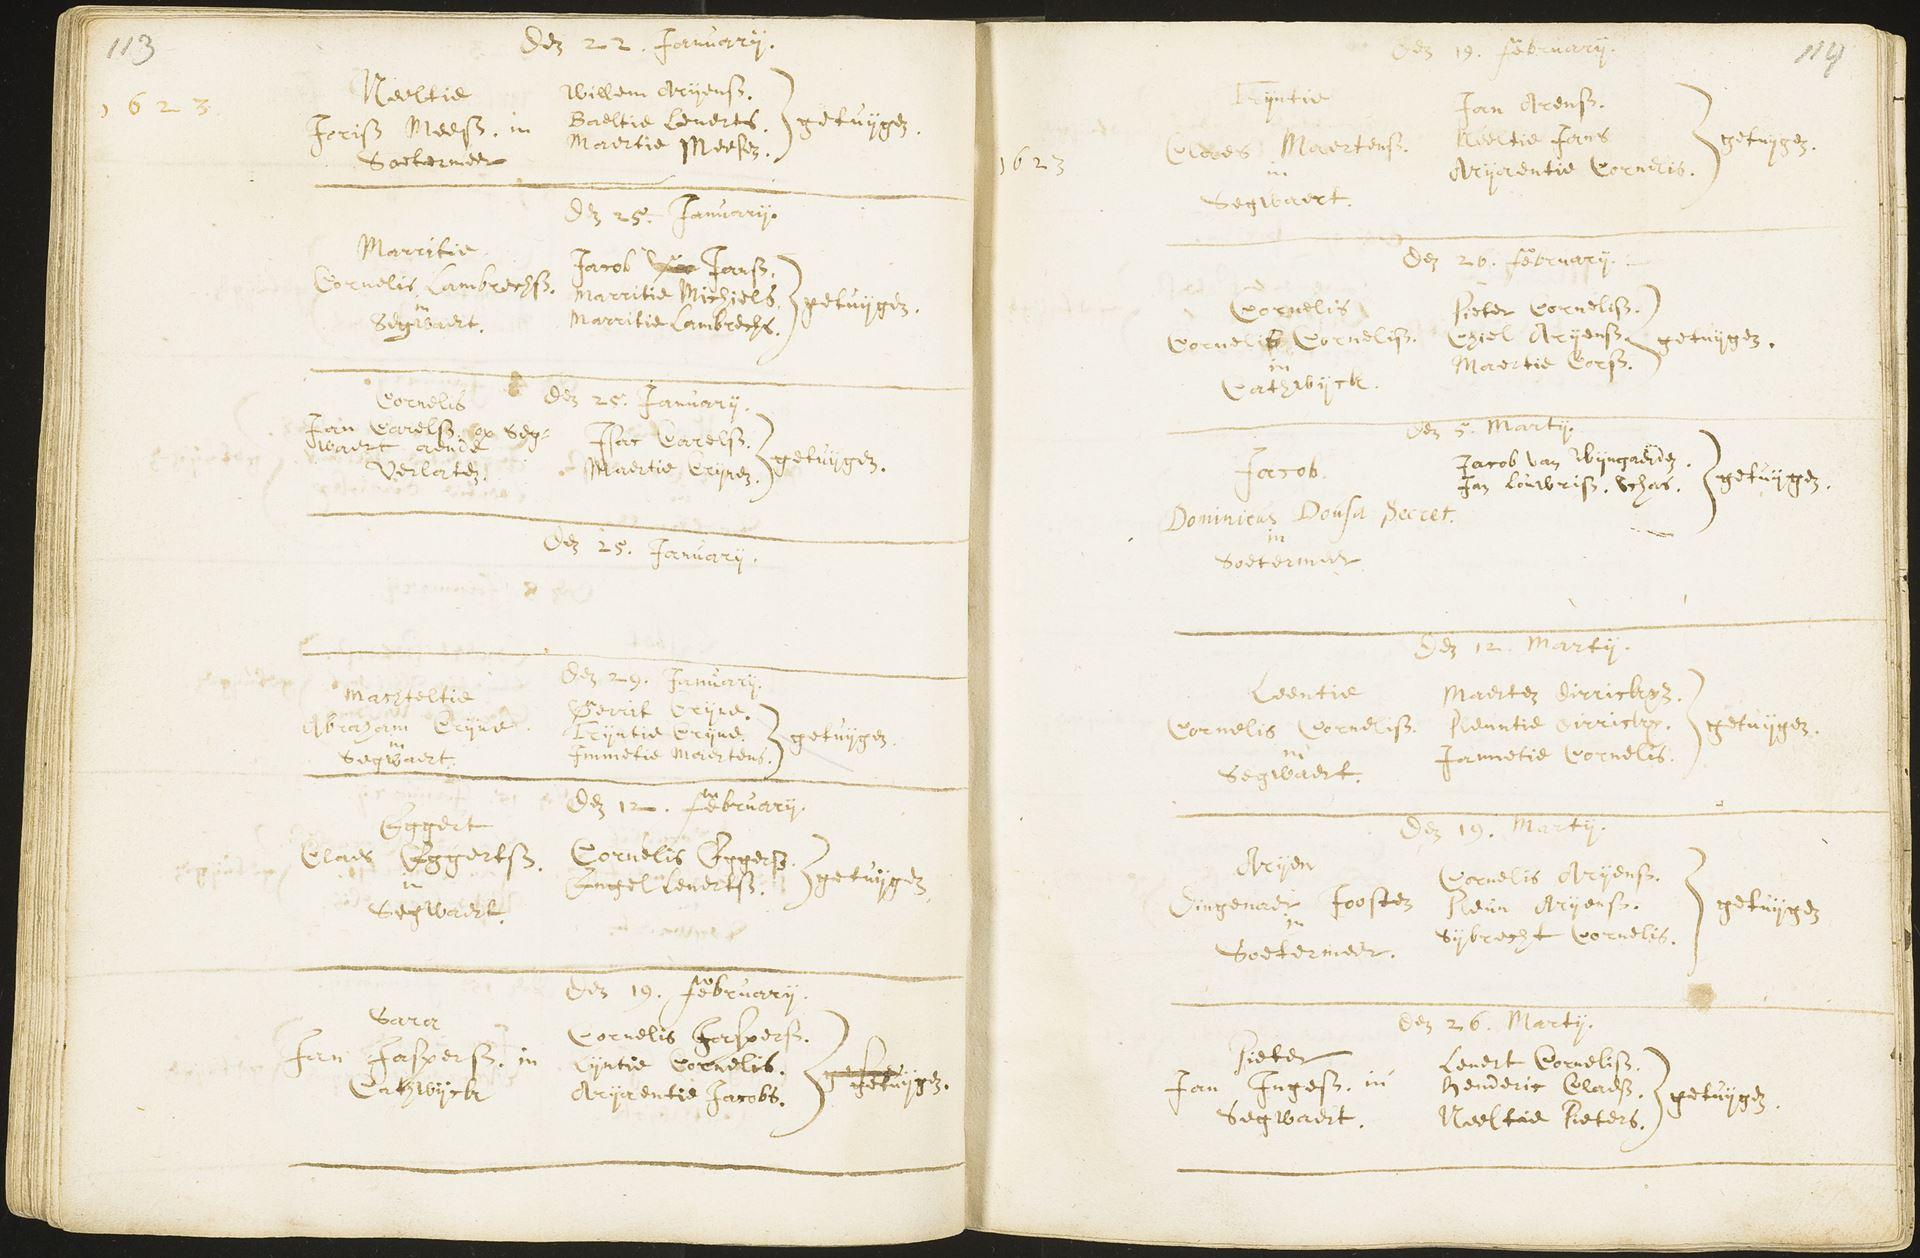 113
1623
Den 22. January.
Neeltie
Joriss Meess. in
Soetermeer
Willem Aryenss.
Baeltie Lenerts.
Maertie Meesen.
getuijgen.
Den 25. January.
Marritie
Cornelis Lambrechss.
in
Segwaert.
Jacob Janss.
Marritie Michiels.
Marritie Lambrechs.
getuijgen.
Den 25. January.
Cornelis
Jan Carelss. op Seg=
waert aende
Verlaten.
Isac Carelss.
Maertie Crijnen.
getuijgen.
Den 25. January.
Den 29. January.
Machteltie
Abraham Crijne.
in
Segwaert.
Gerrit Crijne.
Trijntie Crijne.
Immetie Maertens.
getuijgen.
Den 12. february.
Eggert
Claes Eggertss.
in
Segwaert.
Cornelis Eggerss.
Engel Lenertss.
getuijgen.
Den 19. february.
Sara
Jan Jasperss. in
Cathwijck
Cornelis Jasperss.
Lijntie Cornelis.
Aryaentie Jacobs.
getuijgen.
114
1623
Den 19. february.
Trijntie
Claes Maertenss.
in
Segwaert.
Jan Arenss.
Neeltie Jans
Aryaentie Cornelis.
getuijgen.
Den 26. february.
Cornelis
Cornelis Corneliss.
in
Cathwijck.
Pieter Corneliss.
Chiel Aryenss.
Maertie Corss.
getuijgen.
Den 5. Marty.
Jacob
Dominicus Dousa Secret.
in
Soetermeer
Jacob van Wijngaerden.
Jan Louwriss. Schas.
getuijgen.
Den 12. Marty.
Leentie
Cornelis Corneliss.
in
Segwaert.
Maerten Dirrickxen.
Pleuntie Dirrickx.
Jannetie Cornelis.
getuijgen.
Den 19. Marty.
Aryen
Dingenaer Joosten
in
Soetermeer.
Cornelis Aryenss.
Pleun Aryenss.
Sijbrecht Cornelis.
getuijgen
Den 26. Marty.
Pieter
Jan Ingess. in
Segwaert.
Lenert Corneliss.
Henderic Claess.
Neeltie Pieters.
getuijgen.